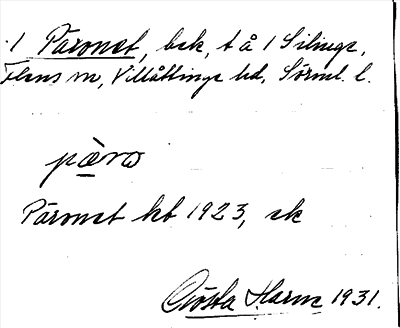 1 Päronet, bsk, t å 1 Silinge,
Flens sn, Villåttinge hd, Sörml. l.
pæ̀rɷ
Päronet kb 1923, ek
Gösta Harm 1931.